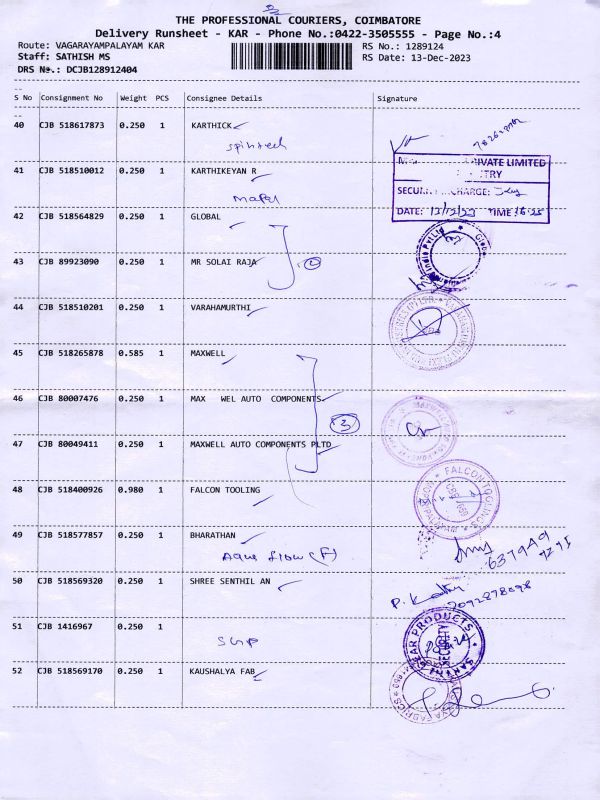 THE PROFESSIONAL COURIERS, COIMBATORE
Delivery Runsheet - KAR - Phone No.:0422-3505555 - Page No.:4
Route: VAGARAYAMPALAYAM KAR
RS No.: 1289124
Staff: SATHISH MS
RS Date: 13-Dec-2023
DRS No.: DCJB128912404
S No Consignment No Weight PCS Consignee Details Signature
40 CJB 518617873 0.250 1 KARTHICK
spintech
41 CJB 518510012 0.250 1 KARTHIKEYAN R
PRIVATE LIMITED
DATE: 13/12/23 TIME
42 CJB 518564829 0.250 1 GLOBAL
43 CJB 89923090 0.250 1 MR SOLAI RAJA
2
44 CJB 518510201 0.250 1 VARAHAMURTHI
45 CJB 518265878 0.585 1 MAXWELL
46 CJB 80007476 0.250 1 MAX WEL AUTO COMPONENTS
3
47 CJB 80049411 0.250 1 MAXWELL AUTO COMPONENTS PLTD
48 CJB 518400926 0.980 1 FALCON TOOLING
FALCON TOOLINGS
49 CJB 518577857 0.250 1 BHARATHAN
Aqua flow (F)
50 CJB 518569320 0.250 1 SHREE SENTHIL AN
51 CJB 1416967 0.250 1
SGP
GEAR PRODUCTS
SECURITY
52 CJB 518569170 0.250 1 KAUSHALYA FAB